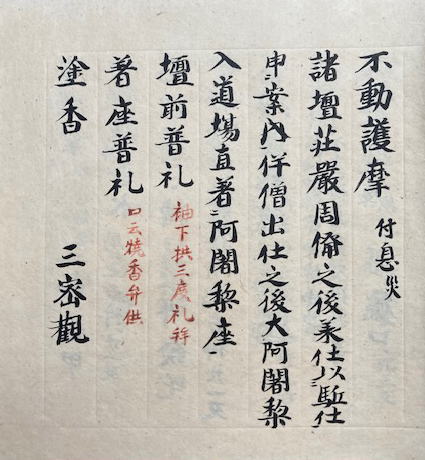 不動護摩 付息災
諸壇荘嚴周備之後承仕以駈仕
申案内伴僧出仕之後大阿闍黎
入道場直著阿闍黎座
壇前普礼 袖下拱三度礼拜
著座普礼 口云燒香弁供
塗香 三密觀